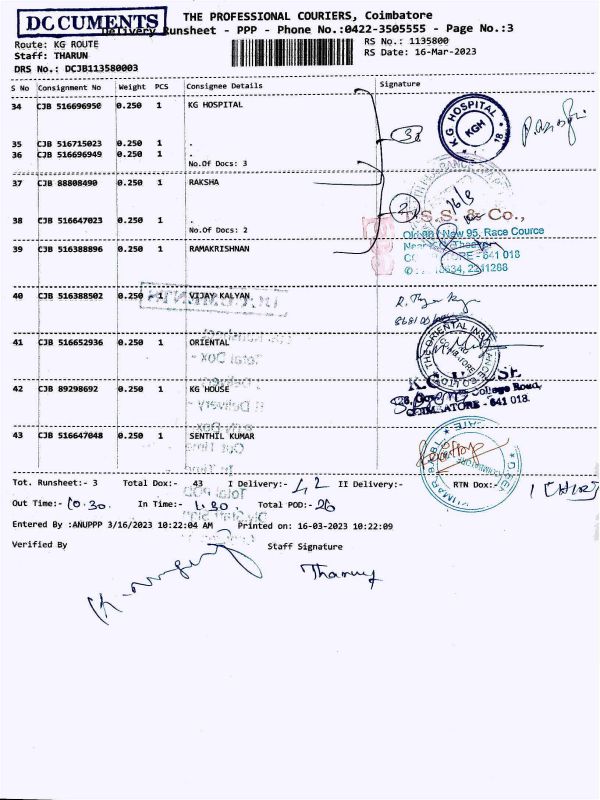 DOCUMENTS
THE PROFESSIONAL COURIERS, Coimbatore
Delivery Runsheet - PPP - Phone No.:0422-3505555 - Page No.:3
Route: KG ROUTE
RS No.: 1135800
Staff: THARUN
RS Date: 16-Mar-2023
DRS No.: DCJB113580003
S No Consignment No Weight PCS Consignee Details Signature
34 CJB 516696950 0.250 1 KG HOSPITAL
K G HOSPITAL
KGH
18
35 CJB 516715023 0.250 1 .
36 CJB 516696949 0.250 1 .
No.Of Docs: 3
37 CJB 88808490 0.250 1 RAKSHA
2
16/3
38 CJB 516647023 0.250 1 .
No.Of Docs: 2
S.S. & Co.,
New 95, Race Cource
641 018
2211288
39 CJB 516388896 0.250 1 RAMAKRISHNAN
40 CJB 516388502 0.250 1 VIJAY KALYAN
41 CJB 516652936 0.250 1 ORIENTAL
THE ORIENTAL INS
COIMBATORE
42 CJB 89298692 0.250 1 KG HOUSE
College Road,
COIMBATORE - 641 018.
43 CJB 516647048 0.250 1 SENTHIL KUMAR
Tot. Runsheet:- 3 Total Dox:- 43 I Delivery:- 42 II Delivery:- RTN Dox:- 1
Out Time:- 10.30. In Time:- 1.30. Total POD:- 26
Entered By :ANUPPP 3/16/2023 10:22:04 AM Printed on: 16-03-2023 10:22:09
Verified By Staff Signature